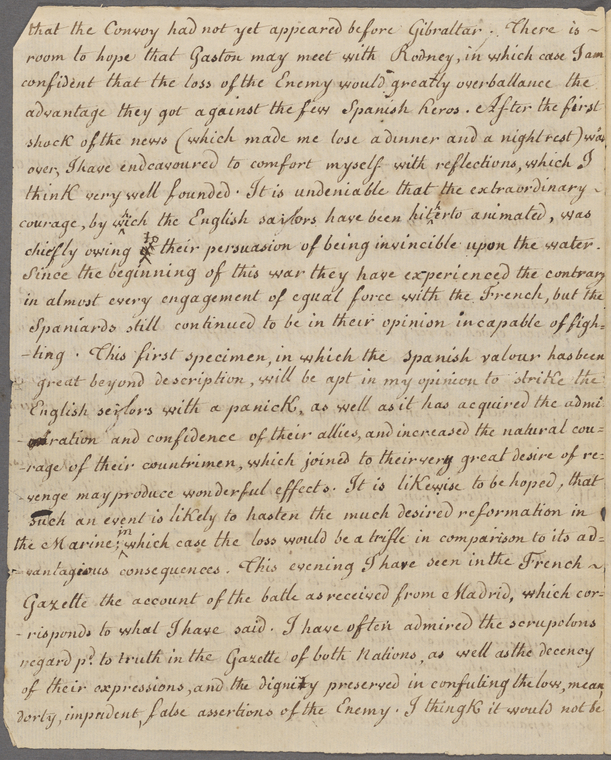 that the Convoy had not yet appeared before Gibraltar. There is ~
room to hope that Gaston may meet with Rodney, in which case I am
confident that the loss of the Enemy would greatly overballance the
advantage they got against the few Spanish heros. After the first
shock of the news (which made me lose a dinner and a night rest) was
over, I have endeavoured to comfort myself with reflections, which I
think very well founded. It is undeniable that the extraordinary ~
courage, by wich the English sailors have been hiterto animated, was
chiefly owing to their persuasion of being invincible upon the water.
Since the beginning of this war they have experienced the contrary
in almost every engagement of egual force with the French, but the
Spaniards still continued to be in their opinion incapable of figh=
-ting. This first specimen, in which the Spanish valour has been
great beyond description, will be apt in my opinion to strike the
English seylors with a panick, as well as it has acquired the admi
-ration and confidence of their allies, and increased the natural cou=
-rage of their countrimen, which joined to their very great desire of re=
-venge may produce wonderful effects. It is likewise to be hoped, that
such an event is likely to hasten the much desired reformation in
the Marine; in which case the loss would be a trifle in comparison to its ad=
-vantagious consequences. This evening I have seen in the French ~
Gazette the account of the batle as received from Madrid, which cor=
-risponds to what I have said. I have often admired the scrupolous
regard pd. to truth in the Gazette of both Nations, as well as the decency
of their expressions, and the dignity preserved in confuting the low, mean
dorty, impudent, false assertions of the Enemy. I thingk it would not be